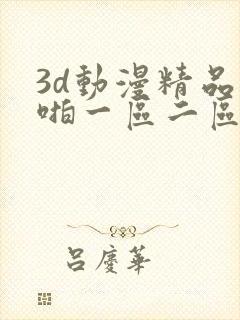 3d動漫精品
啪一區二區
呂慶華